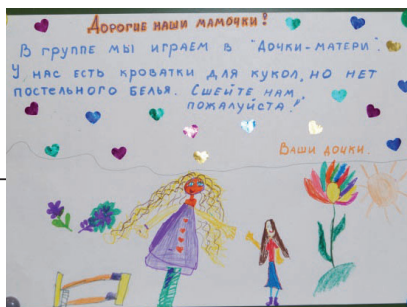 Дорогие наши мамочки!
В группе мы играем в "дочки-матери".
У нас есть кроватки для кукол, но нет
постельного белья. Сшейте нам,
пожалуйста!"
Ваши дочки.